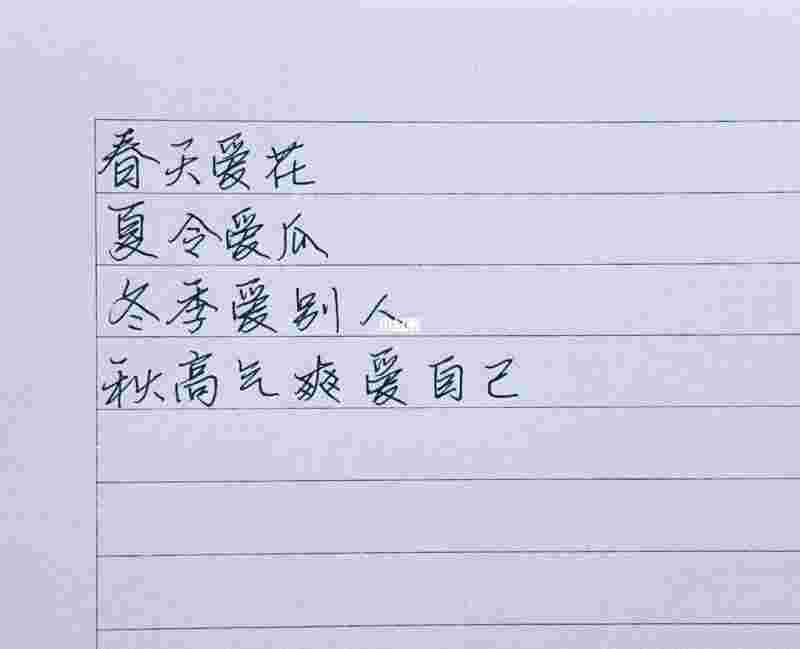 春天爱花
夏令爱瓜
冬季爱别人
秋高气爽爱自己